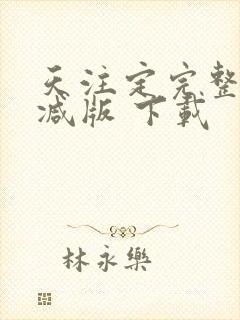 天注定完整
减版 下載
林永樂